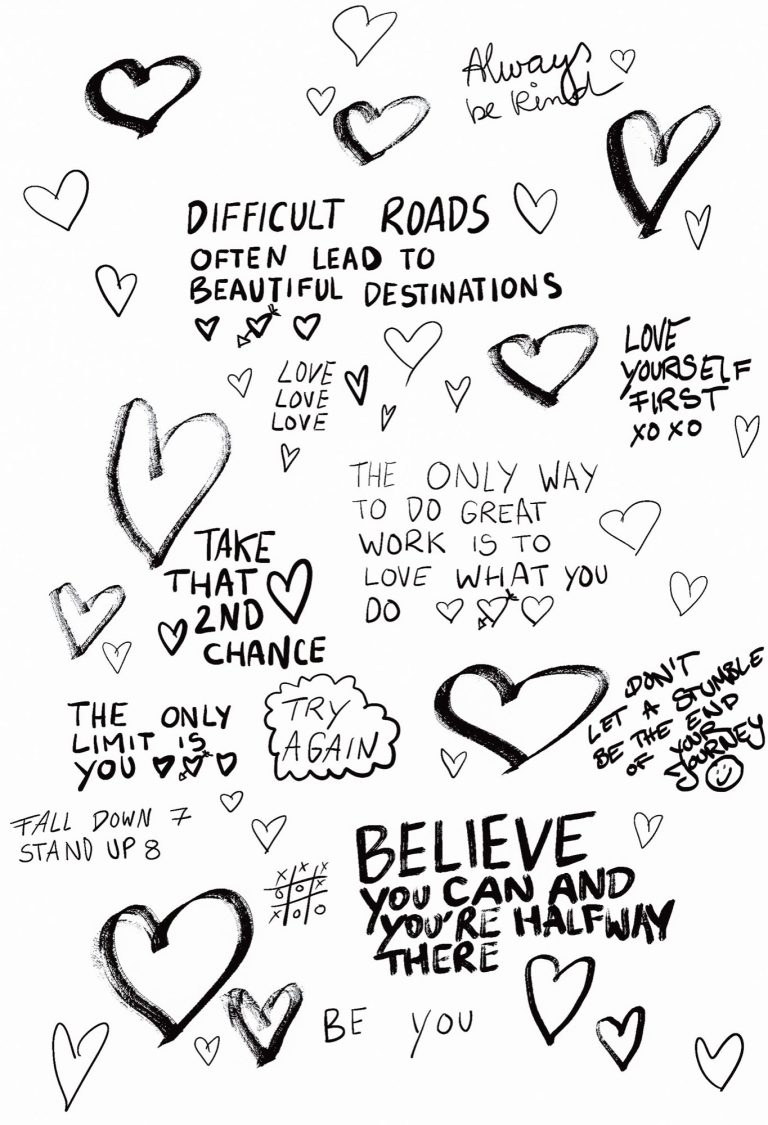 Always
be kind
DIFFICULT ROADS
OFTEN LEAD TO
BEAUTIFUL DESTINATIONS
LOVE
LOVE
LOVE
LOVE
YOURSELF
FIRST
XO XO
THE ONLY WAY
TO DO GREAT
WORK IS TO
LOVE WHAT YOU
DO
TAKE
THAT
2ND
CHANCE
THE ONLY
LIMIT IS
YOU
TRY
AGAIN
DON'T
LET A STUMBLE
BE THE END
OF YOUR
JOURNEY
FALL DOWN 7
STAND UP 8
X X X
X O O X
X O O
BELIEVE
YOU CAN AND
YOU'RE HALFWAY
THERE
BE YOU